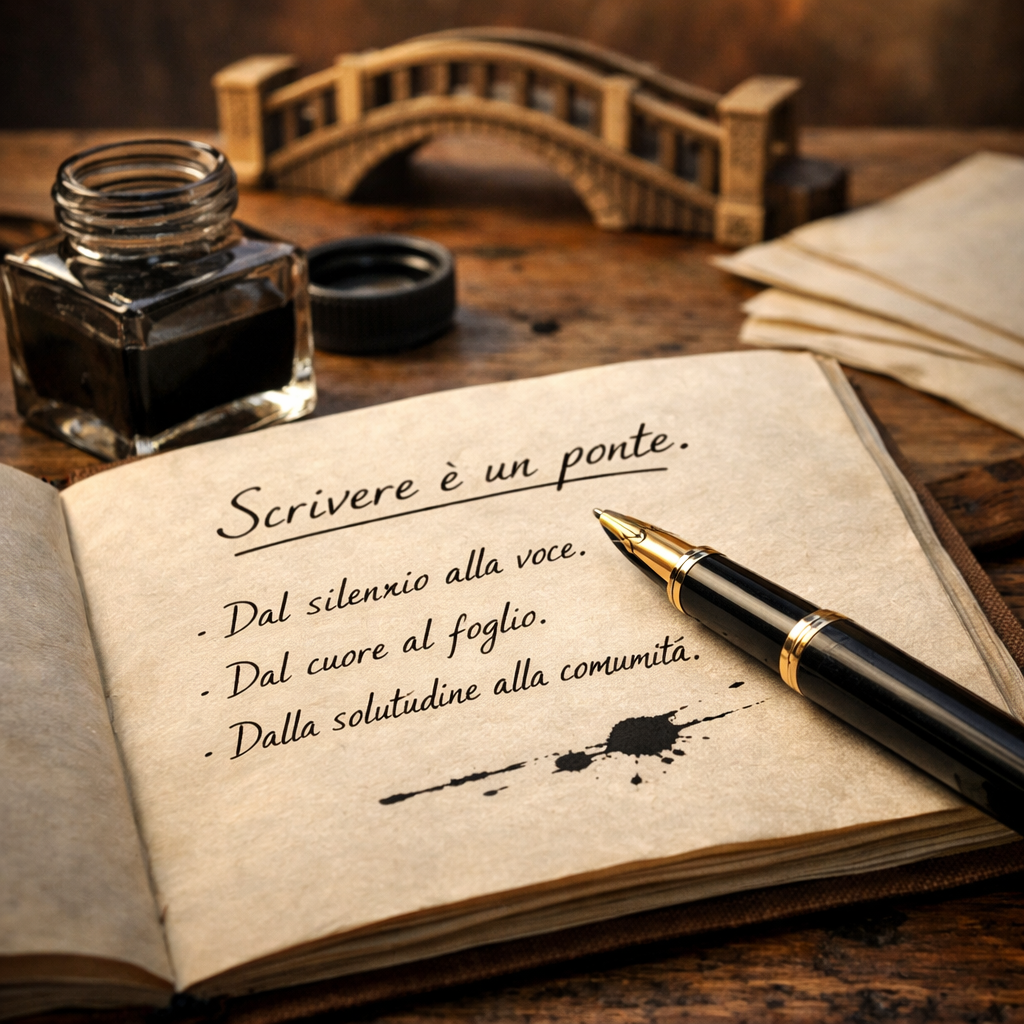 Scrivere è un ponte.
- Dal silenxio alla voce.
- Dal cuore al foglio.
- Dalla solutudine alla comumitá.